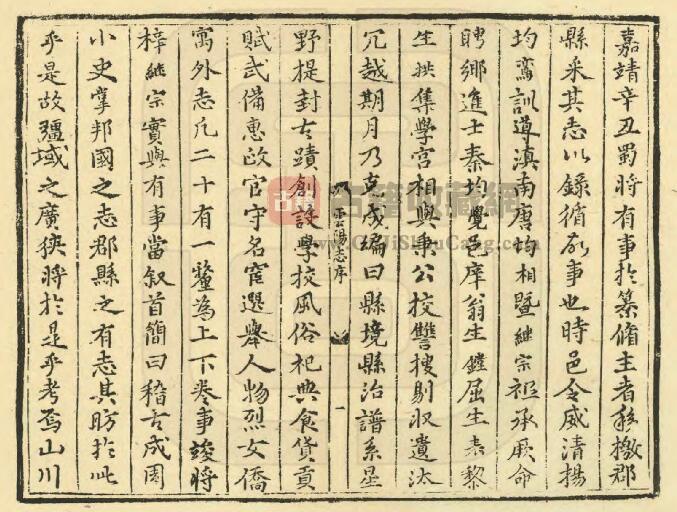 嘉靖辛丑蜀將有事於纂脩主者移檄郡
縣采其志以錄循故事也時邑令威清楊
均鸞訓導滇南唐均相暨継宗祗承厥命
聘鄉進士秦均覺邑庠翁生鏜屈生表黎
生拱集學宮相與秉公校讐搜剔収遺汰
冗越期月乃克成編曰縣境縣治譜系星
野提封古蹟創設學校風俗祀典食貨貢
雲陽志序
一
賦武備惠政官守名宦選舉人物烈女僑
寓外志凢二十有一釐為上下卷事竣將
梓継宗實與有事當叙首簡曰稽古成周
小史掌邦國之志郡縣之有志其昉於此
乎是故疆域之廣狹將於是乎考焉山川
古籍收藏網
GuJiShouCang.com